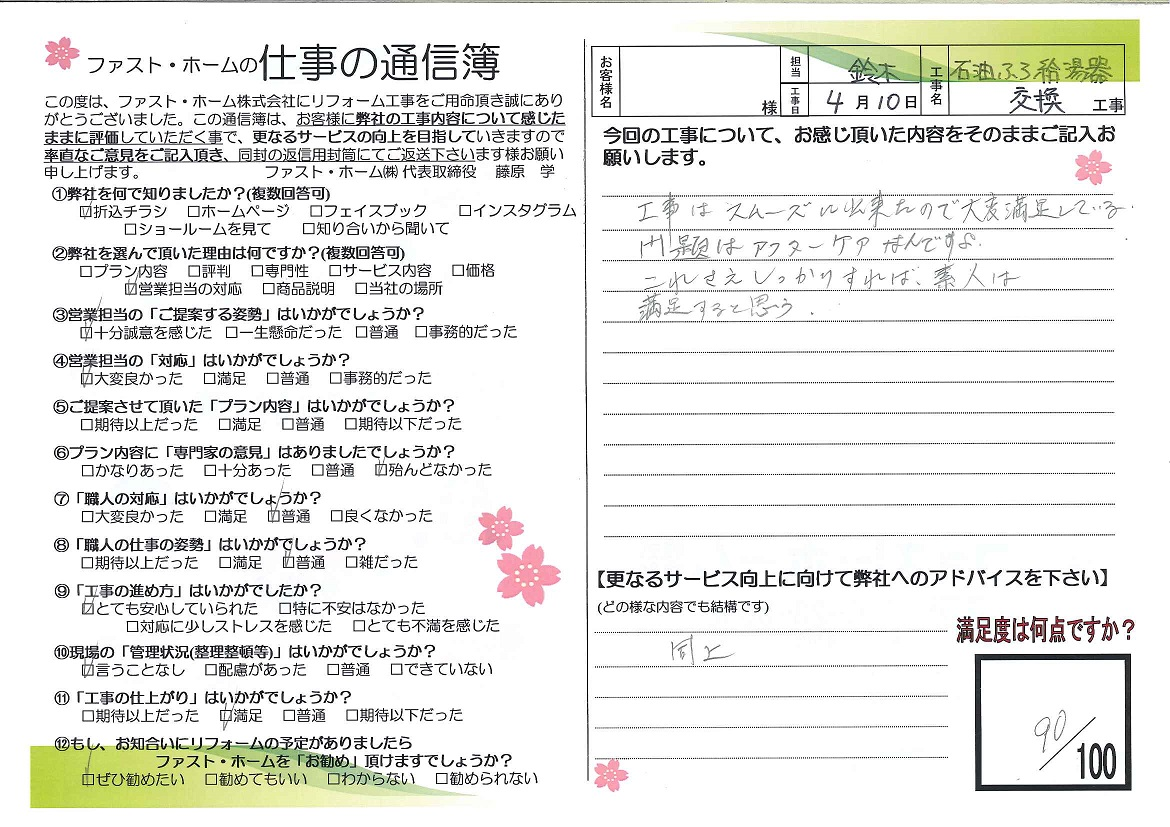 ファスト・ホームの仕事の通信簿
この度は、ファスト・ホーム株式会社にリフォーム工事をご用命頂き誠にあり
がとうございました。この通信簿は、お客様に弊社の工事内容について感じた
ままに評価していただく事で、更なるサービスの向上を目指していきますので
率直なご意見をご記入頂き、同封の返信用封筒にてご返送下さいます様お願い
申し上げます。 ファスト・ホーム㈱ 代表取締役 藤原 学
①弊社を何で知りましたか?(複数回答可)
☑折込チラシ □ホームページ □フェイスブック □インスタグラム
□ショールームを見て □知り合いから聞いて
②弊社を選んで頂いた理由は何ですか?(複数回答可)
□プラン内容 □評判 □専門性 □サービス内容 □価格
☑営業担当の対応 □商品説明 □当社の場所
③営業担当の「ご提案する姿勢」はいかがでしょうか?
☑十分誠意を感じた □一生懸命だった □普通 □事務的だった
④営業担当の「対応」はいかがでしょうか?
☑大変良かった □満足 □普通 □事務的だった
⑤ご提案させて頂いた「プラン内容」はいかがでしょうか?
□期待以上だった □満足 □普通 □期待以下だった
⑥プラン内容に「専門家の意見」はありましたでしょうか?
□かなりあった □十分あった □普通 ☑殆んどなかった
⑦「職人の対応」はいかがでしょうか?
□大変良かった □満足 ☑普通 □良くなかった
⑧「職人の仕事の姿勢」はいかがでしょうか?
□期待以上だった □満足 ☑普通 □雑だった
⑨「工事の進め方」はいかがでしたか?
☑とても安心していられた □特に不安はなかった
□対応に少しストレスを感じた □とても不満を感じた
⑩現場の「管理状況(整理整頓等)」はいかがでしょうか?
☑言うことなし □配慮があった □普通 □できていない
⑪「工事の仕上がり」はいかがでしょうか?
□期待以上だった ☑満足 □普通 □期待以下だった
⑫もし、お知合いにリフォームの予定がありましたら
ファスト・ホームを「お勧め」頂けますでしょうか?
☑ぜひ勧めたい □勧めてもいい □わからない □勧められない
お客様名 様 担当 鈴木 工事日 4月10日 工事名 石油ふろ給湯器
交換 工事
今回の工事について、お感じ頂いた内容をそのままご記入お
願いします。
工事はスムーズに出来たので大変満足している.
問題はアフターケアなんですよ.
これさえしっかりすれば、素人は
満足すると思う.
【更なるサービス向上に向けて弊社へのアドバイスを下さい】
(どの様な内容でも結構です)
同上
満足度は何点ですか?
90/100